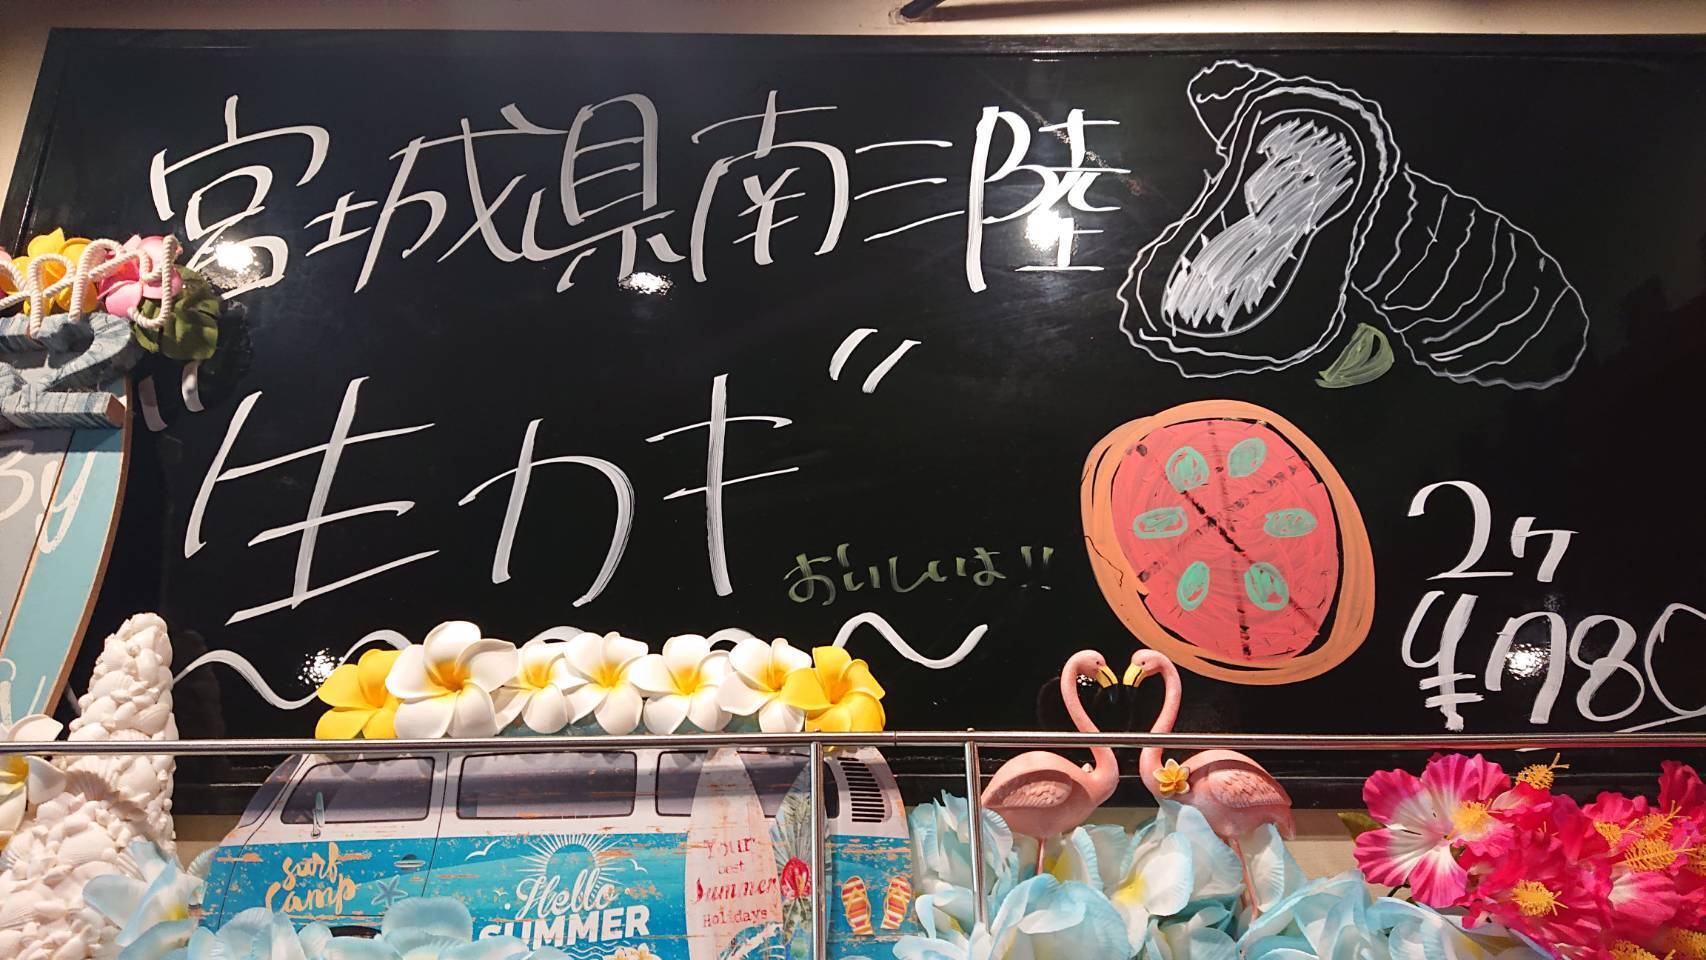 宮城県南三陸
"生カキ"
おいしいよ!!
2ヶ
¥780
By
surf
camp
Hello
SUMMER
Your
best
Summer
Holidays